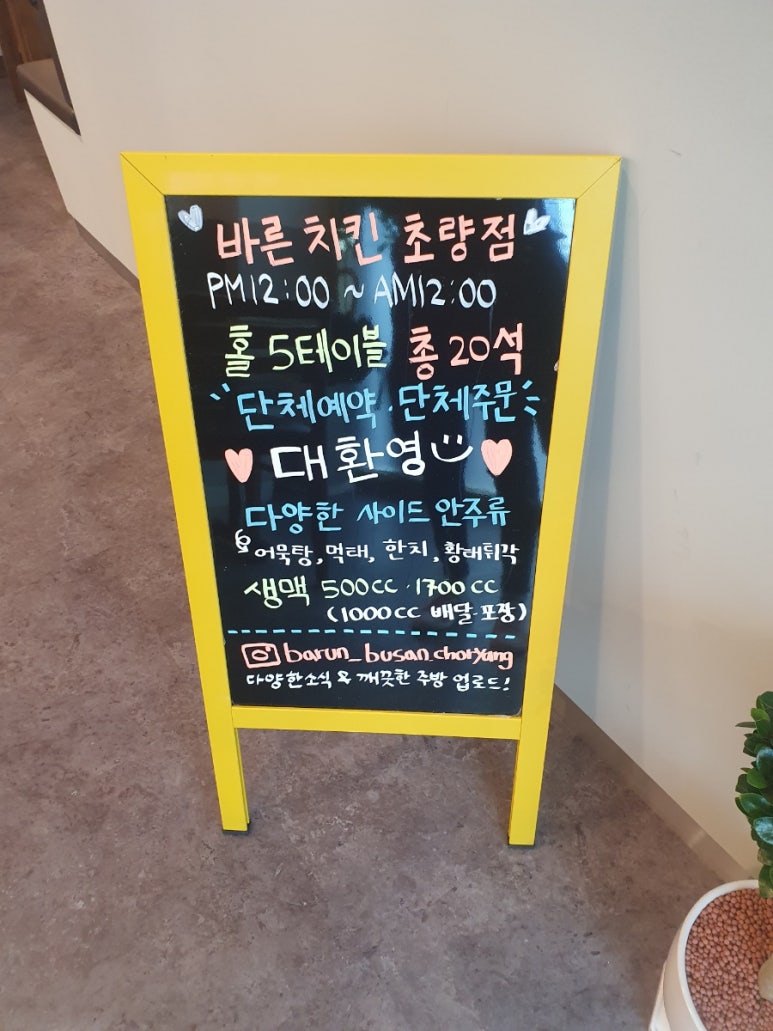 바른치킨 초량점
PM12:00 ~ AM12:00
홀 5테이블 총 20석
단체예약·단체주문
대환영
다양한 사이드 안주류
어묵탕, 먹태, 한치, 황태튀각
생맥 500cc·1700cc
(1000cc 배달·포장)
barun_busan_choryang
다양한소식 & 깨끗한 주방 업로드!